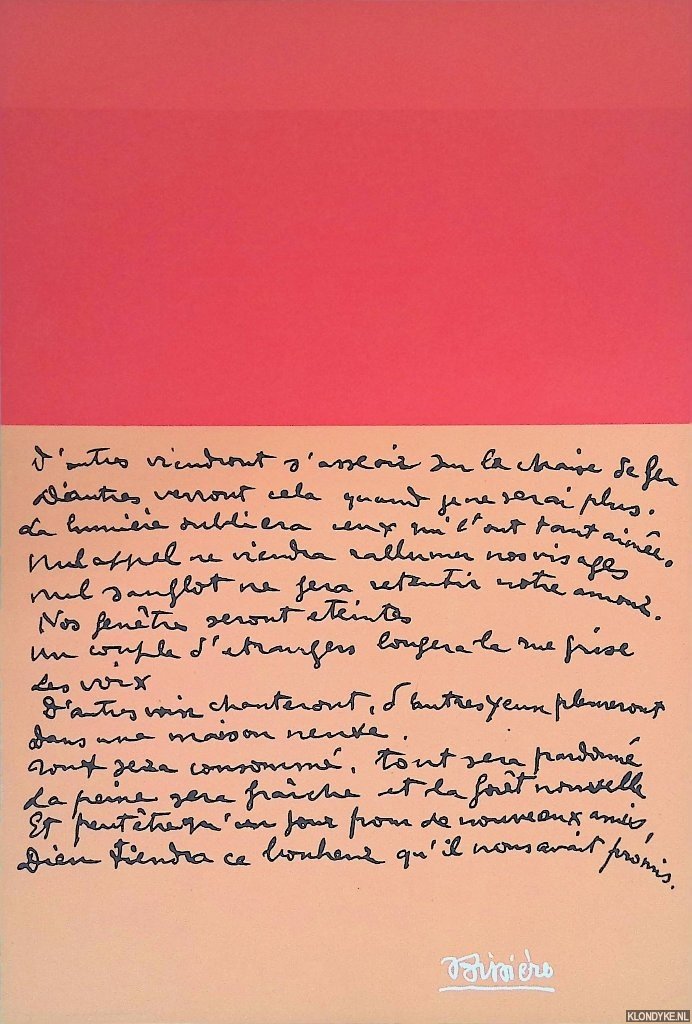 D'autres viendront s'asseoir sur la chaise de fer
D'autres verront cela quand je ne serai plus.
La lumière oubliera ceux qui l'ont tant aimée.
Nul appel ne viendra rallumer nos visages
Nul sanglot ne fera retentir notre amour.
Nos fenêtres seront eteintes
Un couple d'etrangers longera la rue grise
Les voix
D'autres voix chanteront, d'autres yeux pleureront
Dans une maison neuve.
Tout sera consommé, tout sera pardonné
La peine sera fraîche et la forêt nouvelle
Et peut être qu'un jour pour de nouveaux amis,
Dieu tiendra ce bonheur qu'il nous avait promis.
Bissière
KLONDYKE.NL